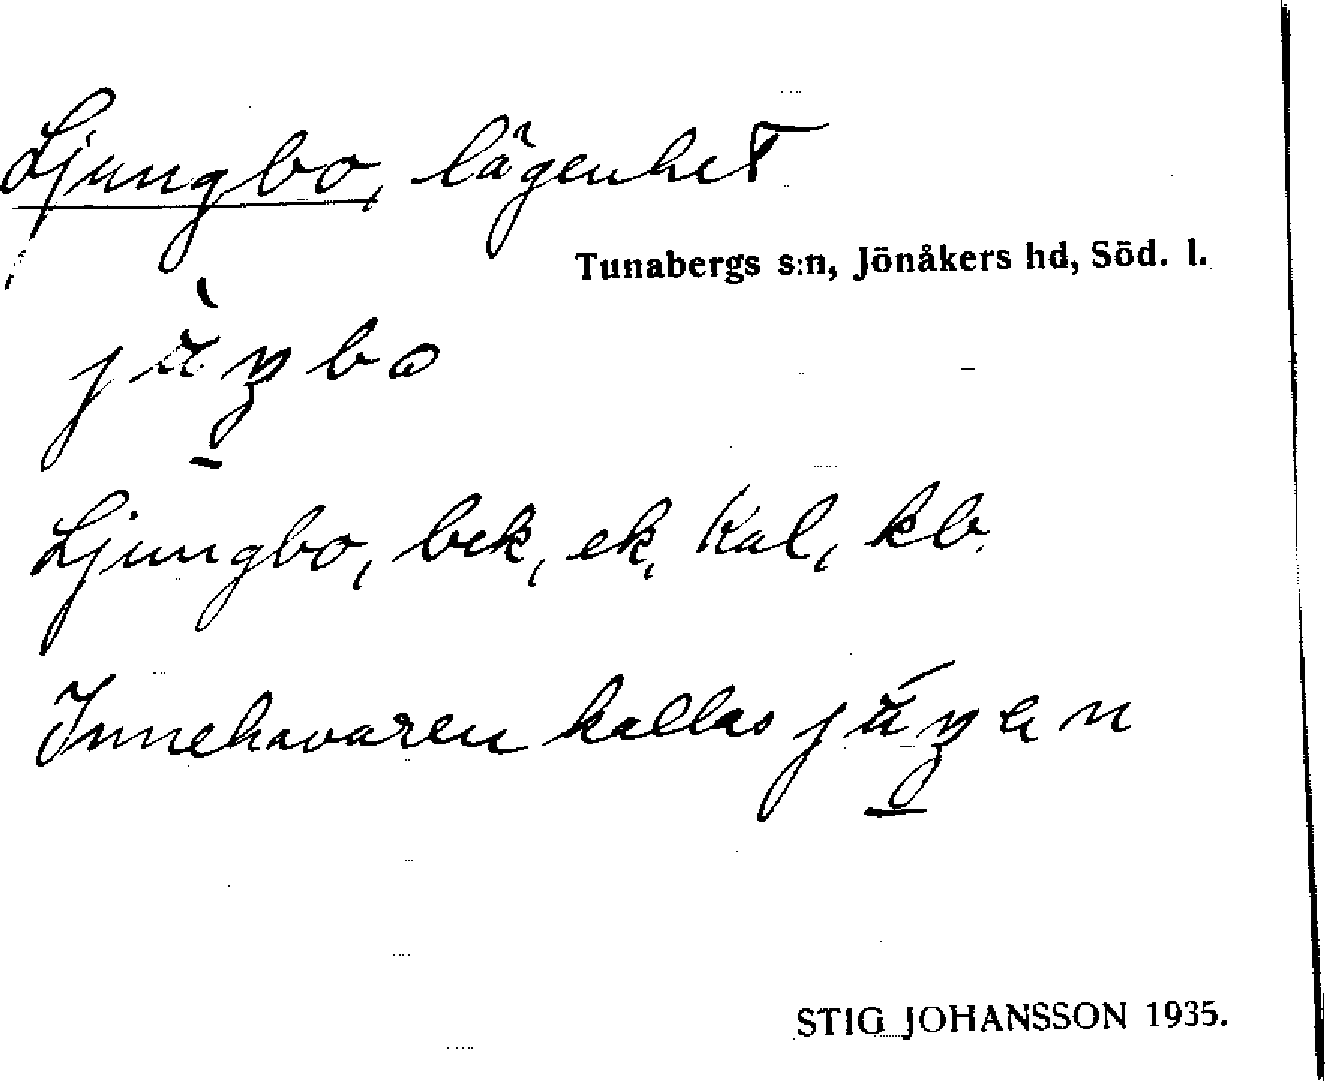 Ljungbo, lägenhet
Tunabergs s:n, Jönåkers hd, Söd. l.
Ljungbo, bek, ek, Kal, kb.
Innehavaren kallas
STIG JOHANSSON 1935.